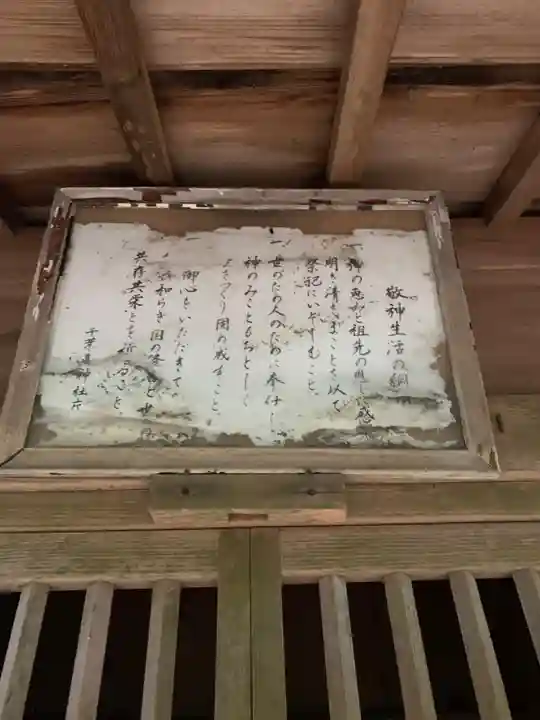 敬神生活の綱
一 神の恵みと祖先の恩に感
明き清きまことを以て
祭祀にいそしむこと
一 世のため人のために奉仕し
神のみこともちとして
世をつくり固め成すこと。
一 大御心をいただきて
睦び和らぎ国の隆昌と世
共存共栄とを祈ること。
千葉県神社庁